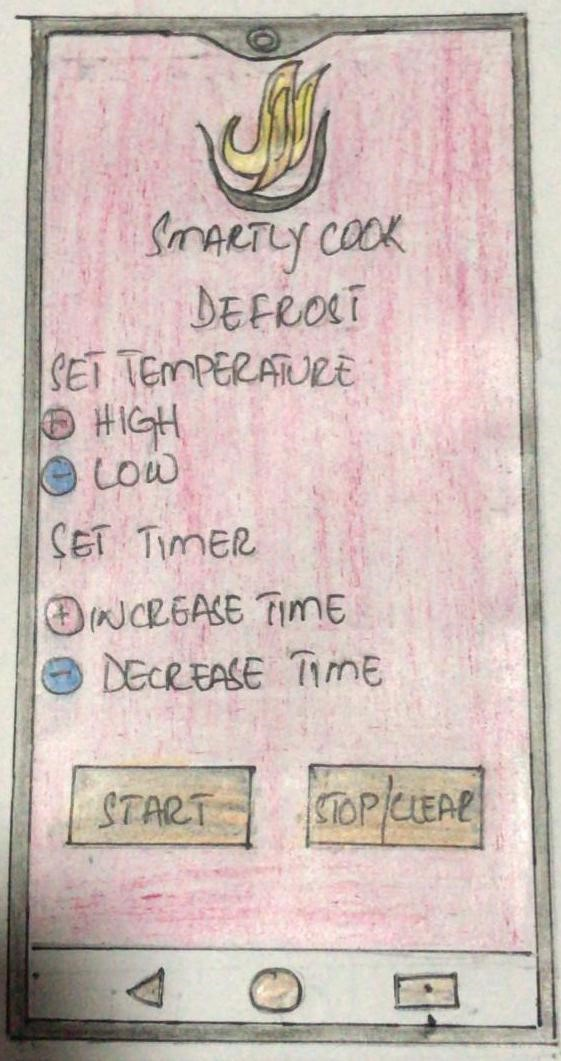 SMARTLY COOK
DEFROST
SET TEMPERATURE
+ HIGH
- LOW
SET TIMER
+ INCREASE TIME
- DECREASE TIME
START
STOP/CLEAR